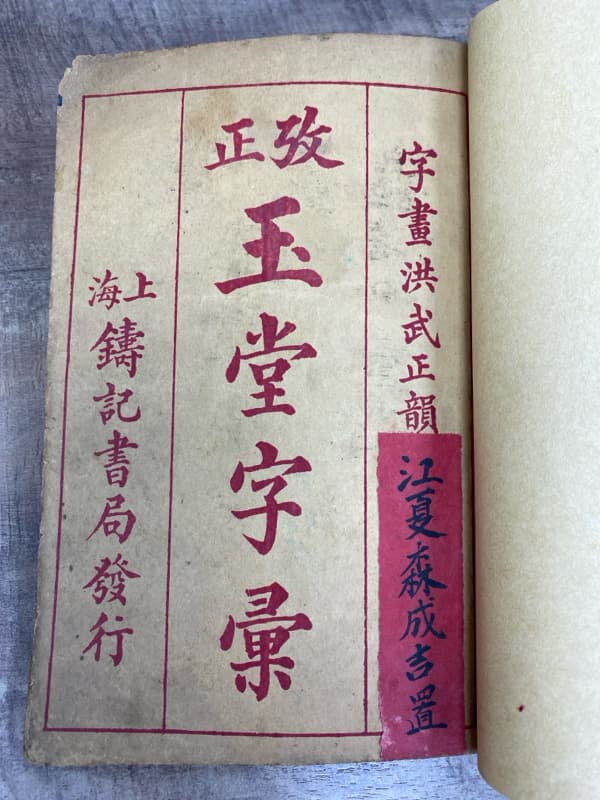 字畫洪武正韻
江夏森成吉置
攷正
玉堂字彙
上海
鑄記書局發行